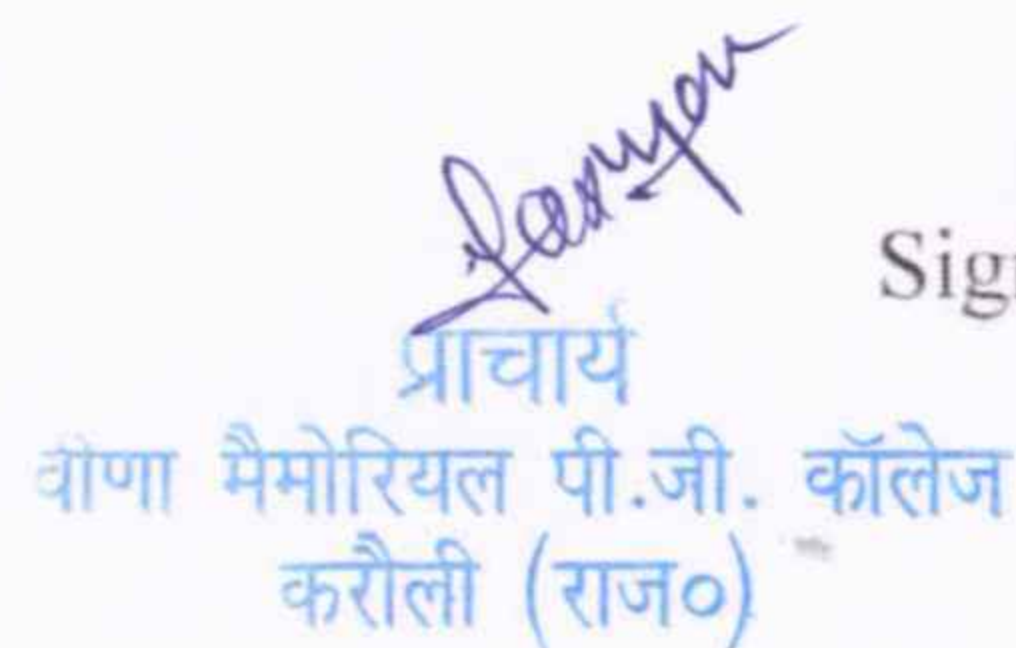 Sig
प्राचार्य
वीणा मैमोरियल पी.जी. कॉलेज
करौली (राज०)